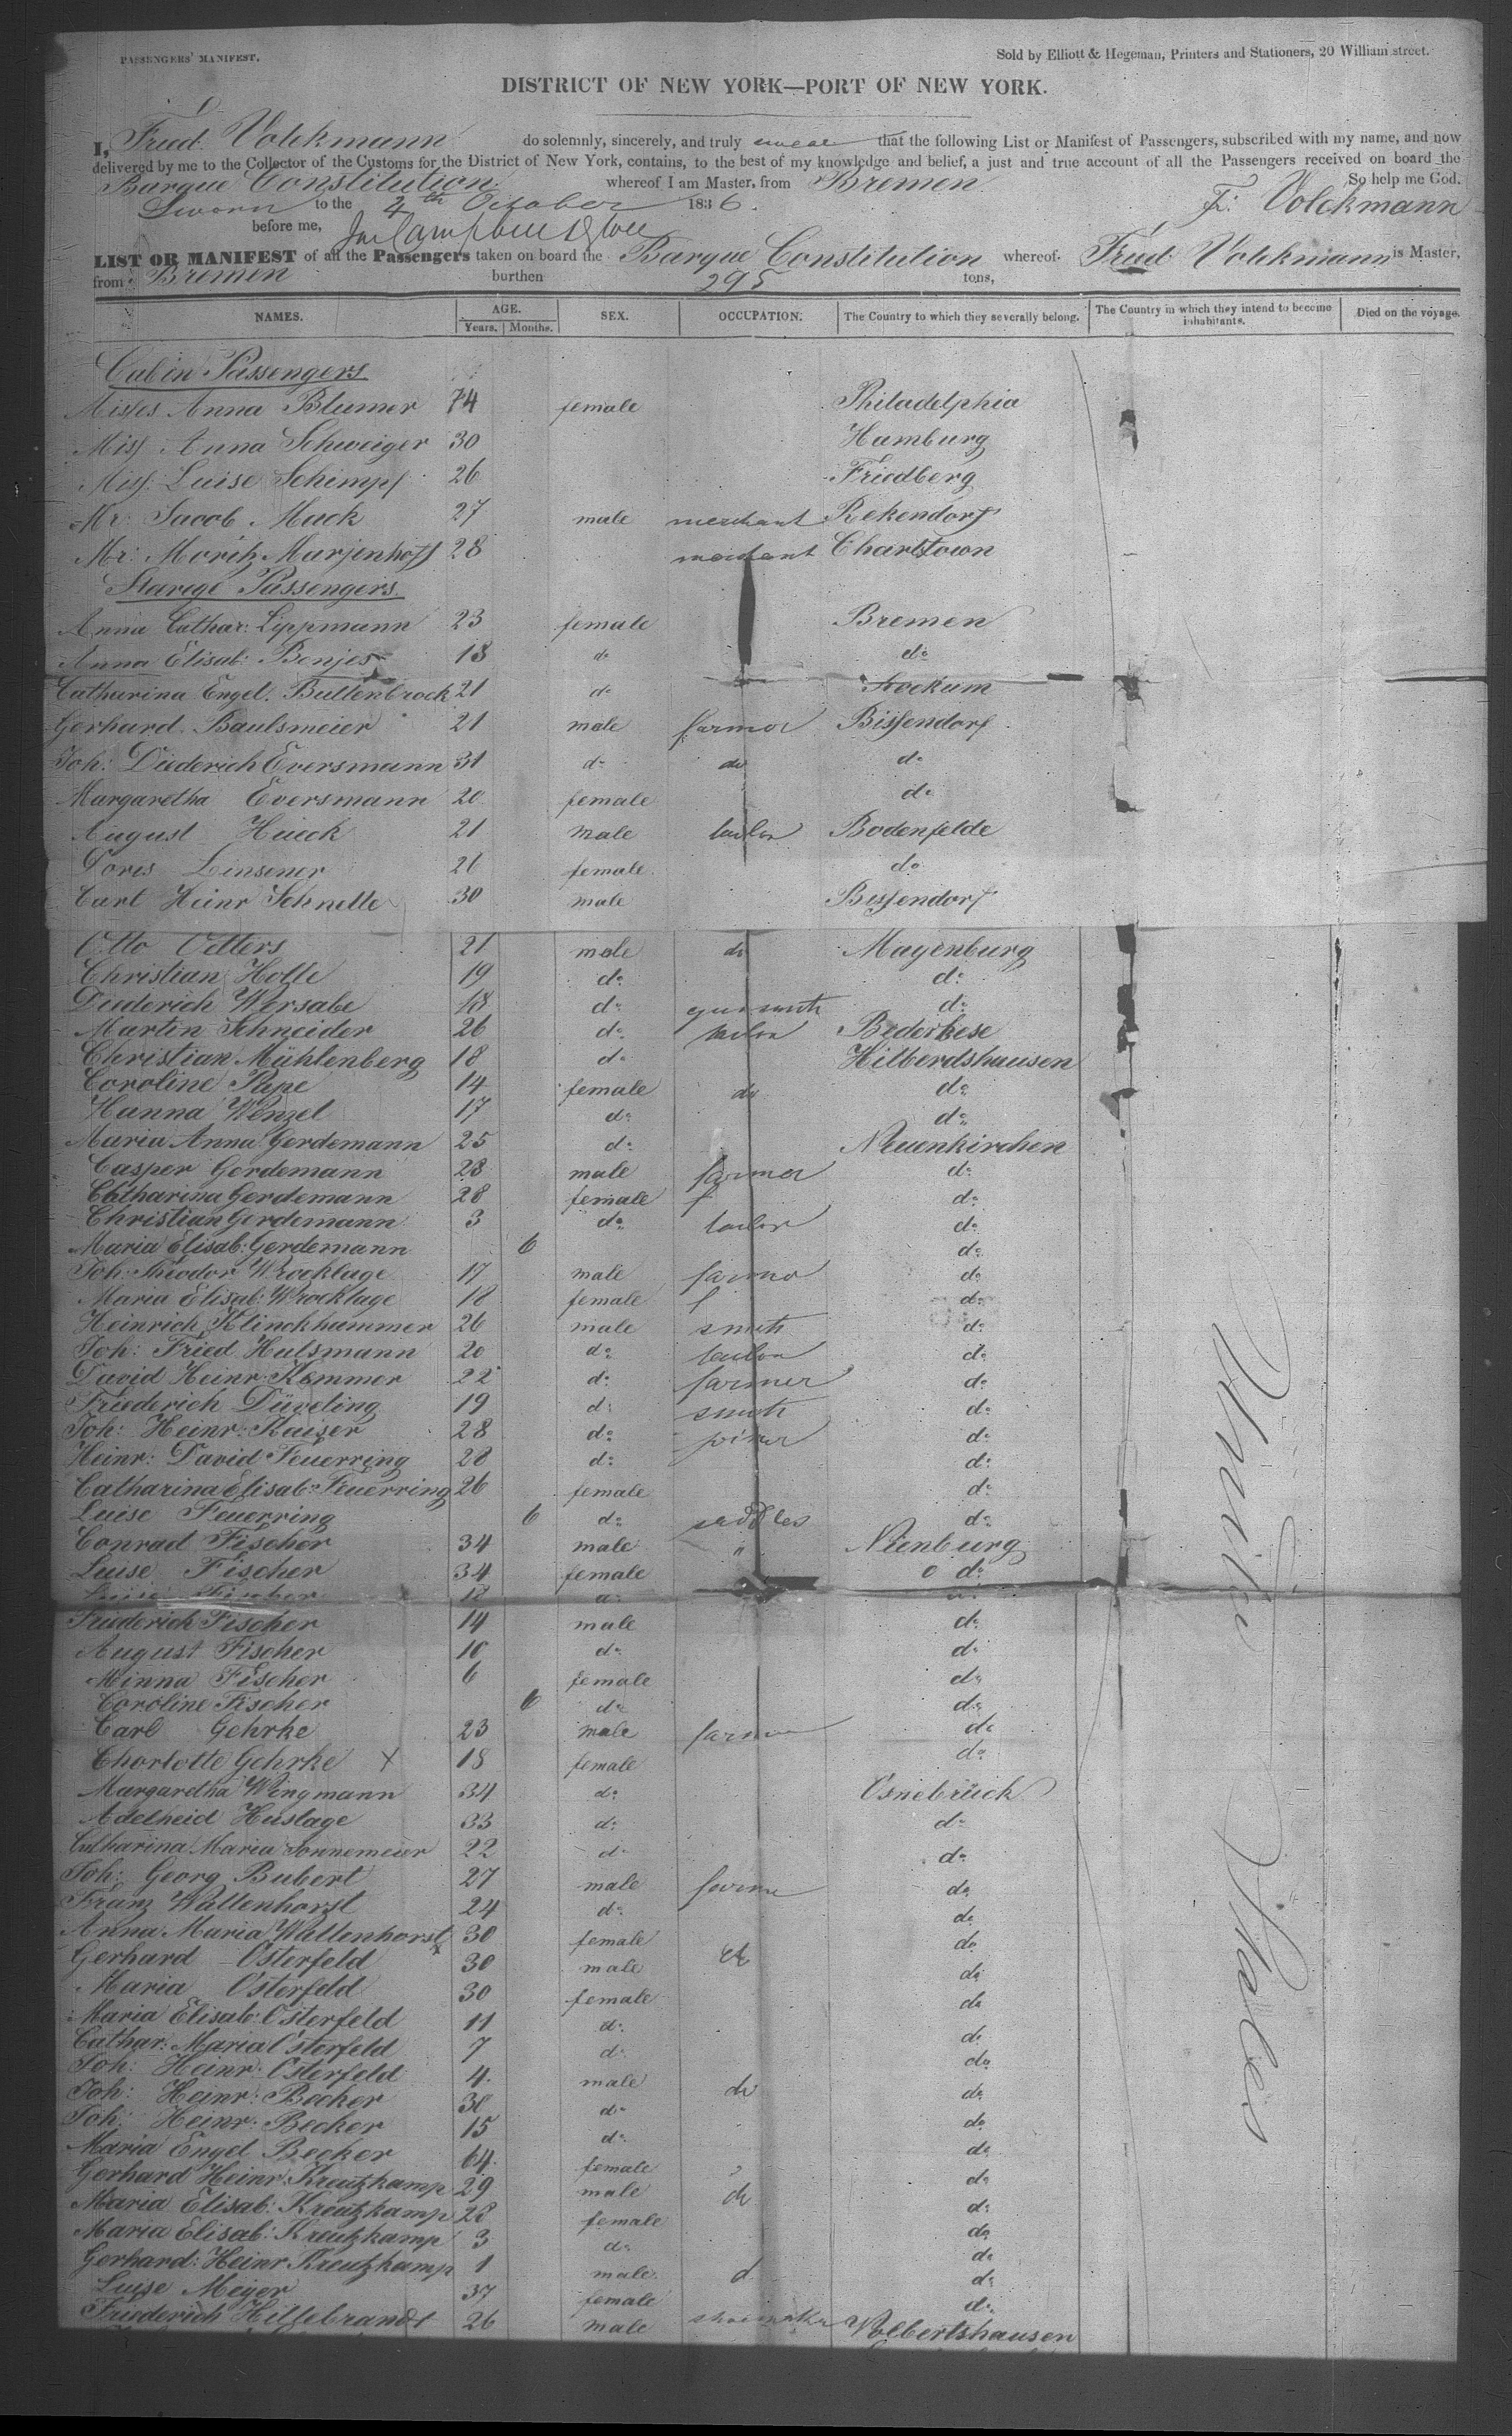 PASSENGERS' MANIFEST. Sold by Elliott & Hegeman, Printers and Stationers, 20 William street.
DISTRICT OF NEW YORK—PORT OF NEW YORK.
I, Fried. Volckmann do solemnly, sincerely, and truly swear that the following List or Manifest of Passengers, subscribed with my name, and now
delivered by me to the Collector of the Customs for the District of New York, contains, to the best of my knowledge and belief, a just and true account of all the Passengers received on board the
Barque Constitution whereof I am Master, from Bremen. So help me God.
Sworn to the 4th October 1836. Fr: Volckmann
before me,
LIST OR MANIFEST of all the Passengers taken on board the Barque Constitution whereof Fried Volckmann is Master,
from Bremen burthen 295 tons,
NAMES. AGE. SEX. OCCUPATION. The Country to which they severally belong. The Country in which they intend to become inhabitants. Died on the voyage.
Years. Months.
Cabin Passengers
Misses Anna Blumer 74 female Philadelphia
Miss Anna Schweiger 30 Hamburg
Miss Luise Schimpf 26 Friedberg
Mr: Jacob Mack 27 male merchant Rekendorf
Mr: Moritz Marjenhoff 28 merchant Charlstown
Starege Passengers
Anna Cathar: Lippmann 23 female Bremen
Anna Elisab: Benjes 18 do do
Catharina Engel. Bultenbrock 21 do Stockum
Gerhard Baulsmeier 21 male farmer Bissendorf
Joh: Diederich Eversmann 31 do do do
Margaretha Eversmann 20 female do
August Hueck 21 male tailor Bodenfelde
Doris Linsener 26 female do
Carl Heinr Schnelle 30 male Bissendorf
Otto Oetters 21 male do Mayenburg
Christian Holle 19 do do
Diederich Wersabe 18 do gunsmith do
Martin Schneider 26 do tailor Bederkese
Christian Mühlenberg 18 do Hilberdshausen
Coroline Pape 14 female do do
Hanna Wenzel 17 do do
Maria Anna Gerdemann 25 do Neuenkirchen
Casper Gerdemann 28 male farmer do
Catharina Gerdemann 28 female do
Christian Gerdemann 3 do tailor do
Maria Elisab: Gerdemann 6 do
Joh: Theodor Wrocklage 17 male farmer do
Maria Elisab: Wrocklage 18 female do
Heinrich Klinckhammer 26 male smith do
Joh: Fried Hulsmann 20 do tailor do
David Heinr: Kemmer 22 do farmer do
Friederich Düveling 19 do smith do
Joh: Heinr: Kaiser 28 do joiner do
Heinr: David Feuerring 28 do do
Catharina Elisab: Feuerring 26 female do
Luise Feuerring 6 do saddler do
Conrad Fischer 34 male " Nienburg
Luise Fischer 34 female do
Luise Fischer 18 do do
Friederich Fischer 14 male do
August Fischer 10 do do
Minna Fischer 6 female do
Coroline Fischer 6 do do
Carl Gehrke 23 male farmer do
Chorlotte Gehrke X 18 female do
Margaretha Wingmann 34 do Osnebrück
Adelheid Huslage 33 do do
Catharina Maria Sonnemeier 22 do do
Joh: Georg Bubert 27 male farmer do
Franz Wallenhorst 24 do do
Anna Maria Wallenhorst 30 female do
Gerhard Osterfeld 30 male do do
Maria Osterfeld 30 female do
Maria Elisab: Osterfeld 11 do do
Cathar: Maria Osterfeld 7 do do
Joh: Heinr: Osterfeld 4 male do
Joh: Heinr: Becker 30 do do do
Joh: Heinr: Becker 15 do do
Maria Engel Becker 64 female do
Gerhard Heinr: Kreutzkamp 29 male do do
Maria Elisab: Kreutzkamp 28 female do
Maria Elisab: Kreutzkamp 3 do do
Gerhard: Heinr Kreutzkamp 1 male d do
Luise Meyer 37 female do
Friederich Hillebrandt 26 male shoemaker Volbertshausen
United States